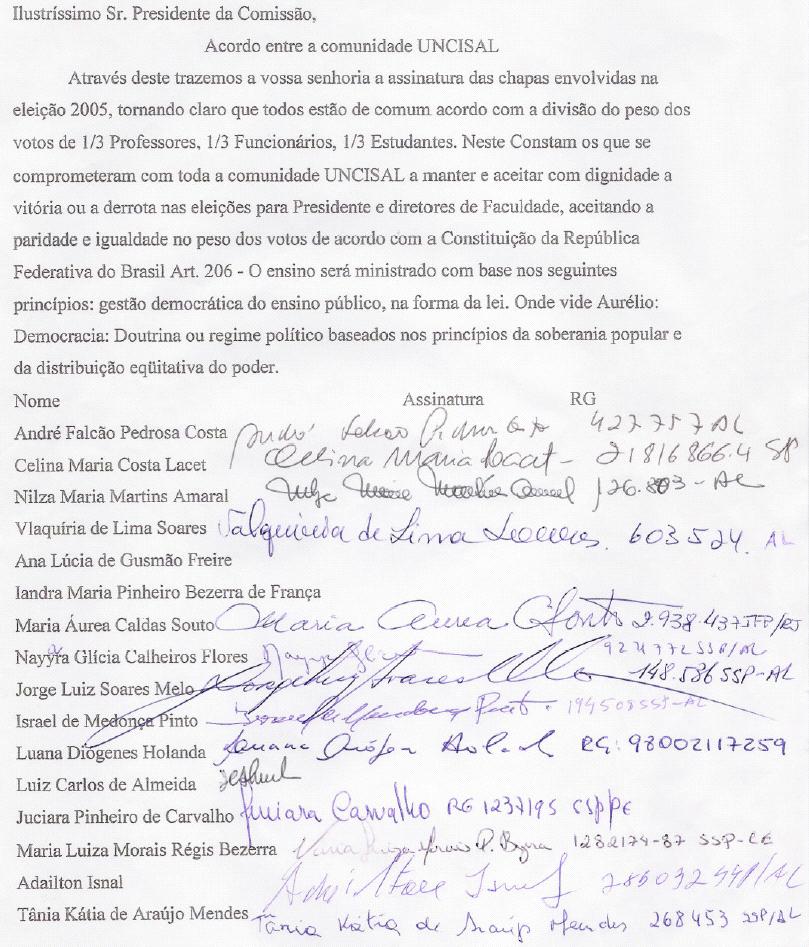 Ilustríssimo Sr. Presidente da Comissão,
Acordo entre a comunidade UNCISAL
Através deste trazemos a vossa senhoria a assinatura das chapas envolvidas na
eleição 2005, tornando claro que todos estão de comum acordo com a divisão do peso dos
votos de 1/3 Professores, 1/3 Funcionários, 1/3 Estudantes. Neste Constam os que se
comprometeram com toda a comunidade UNCISAL a manter e aceitar com dignidade a
vitória ou a derrota nas eleições para Presidente e diretores de Faculdade, aceitando a
paridade e igualdade no peso dos votos de acordo com a Constituição da República
Federativa do Brasil Art. 206 - O ensino será ministrado com base nos seguintes
princípios: gestão democrática do ensino público, na forma da lei. Onde vide Aurélio:
Democracia: Doutrina ou regime político baseados nos princípios da soberania popular e
da distribuição eqüitativa do poder.
Nome Assinatura RG
André Falcão Pedrosa Costa André 427757 AL
Celina Maria Costa Lacet Celina Maria Lacet - 21816866.4 SP
Nilza Maria Martins Amaral - AL
Vlaquíria de Lima Soares Valquíria de Lima Soares. 603524. AL
Ana Lúcia de Gusmão Freire
Iandra Maria Pinheiro Bezerra de França
Maria Áurea Caldas Souto Maria Aurea Souto 2.938.437 IFP/RJ
Nayyra Glícia Calheiros Flores
Jorge Luiz Soares Melo 148.586 SSP-AL
Israel de Medonça Pinto 194508 SSP-AL
Luana Diógenes Holanda Luana Holanda RG: 98002117259
Luiz Carlos de Almeida
Juciara Pinheiro de Carvalho Juciara Carvalho RG 1237195 SSP/PE
Maria Luiza Morais Régis Bezerra 1282174-87 SSP-CE
Adailton Isnal Adailton Isnal
Tânia Kátia de Araújo Mendes Tânia Kátia de Araújo Mendes 268453 SSP/AL